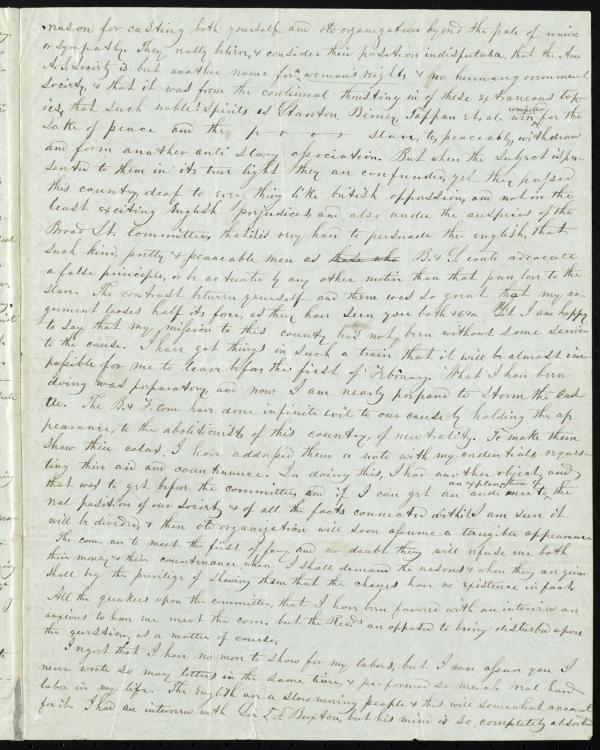 reason for casting both yourself and old organization beyond the pale of union
or sympathy. They really believe, & consider their position indisputable, that the Ame
A. S. Society is but another name for a woman's rights & no human government
Society, & that it was from the continual thrusting in of these extraneous top-
ics, that such noble spirits as Stanton, Birney, Tappan et. al. were compelled, for the
sake of peace and the p o o r slave, to, peaceably, withdraw
and form another anti slavery association. But when the subject is pre-
sented to them in its true light they are confounded, yet they
this country, deaf to every thing like british oppression, and not in the
least exciting English prejudices and also under the auspices of the
Broad St. Committee, that it is very hard to persuade the english, that
such kind, pretty & peaceable men as those who B. & S. could advocate
a false principle, or be actuated by any other motive than that pure love to the
slave. The contrast between yourself and them was so great that my ar-
gument looses half its force, as they have seen you both But I am happy
to say that my mission to this country has not been without some service
to the cause. I have got things in such a train that it will be almost im-
possible for me to leave before the first of February. What I have been
doing was preparatory and now I am nearly prepared to storm the Cas-
tle. The B. & F. com. have done infinite evil to our cause by holding the ap-
pearance, to the abolitionists of this country, of neutrality. To make them
show their colors, I have addressed them a note with my credentials reques-
ting their aid and countenance. In doing this, I had another object, and
that was to get before the committee, and if I can get an audience to an explanation of the
real position of our Society & of all the facts connected with it I am sure it
will be divided, & then old organization will soon assume a tangible appearance
The com. are to meet the first of Jany. and no doubt they will refuse me both
their money & their countenance, when I shall demand the reasons & when they are given
shall beg the privilege of showing them that the charges have no existence in fact.
All the quakers upon the committee, that I have been favored with an interview are
anxious to have me meet the com. but the Revds. are opposed to being disturbed upon
the question, as a matter of course.
I regret that I have no more to show for my labors, but I can assure you I
never wrote so many letters in the same time, & performed so much real hard
labor in my life. The English are a slow moving people & this will somewhat account
for it. I had an interview with Sir T. F. Buxton, but his mind is so completely absorbed